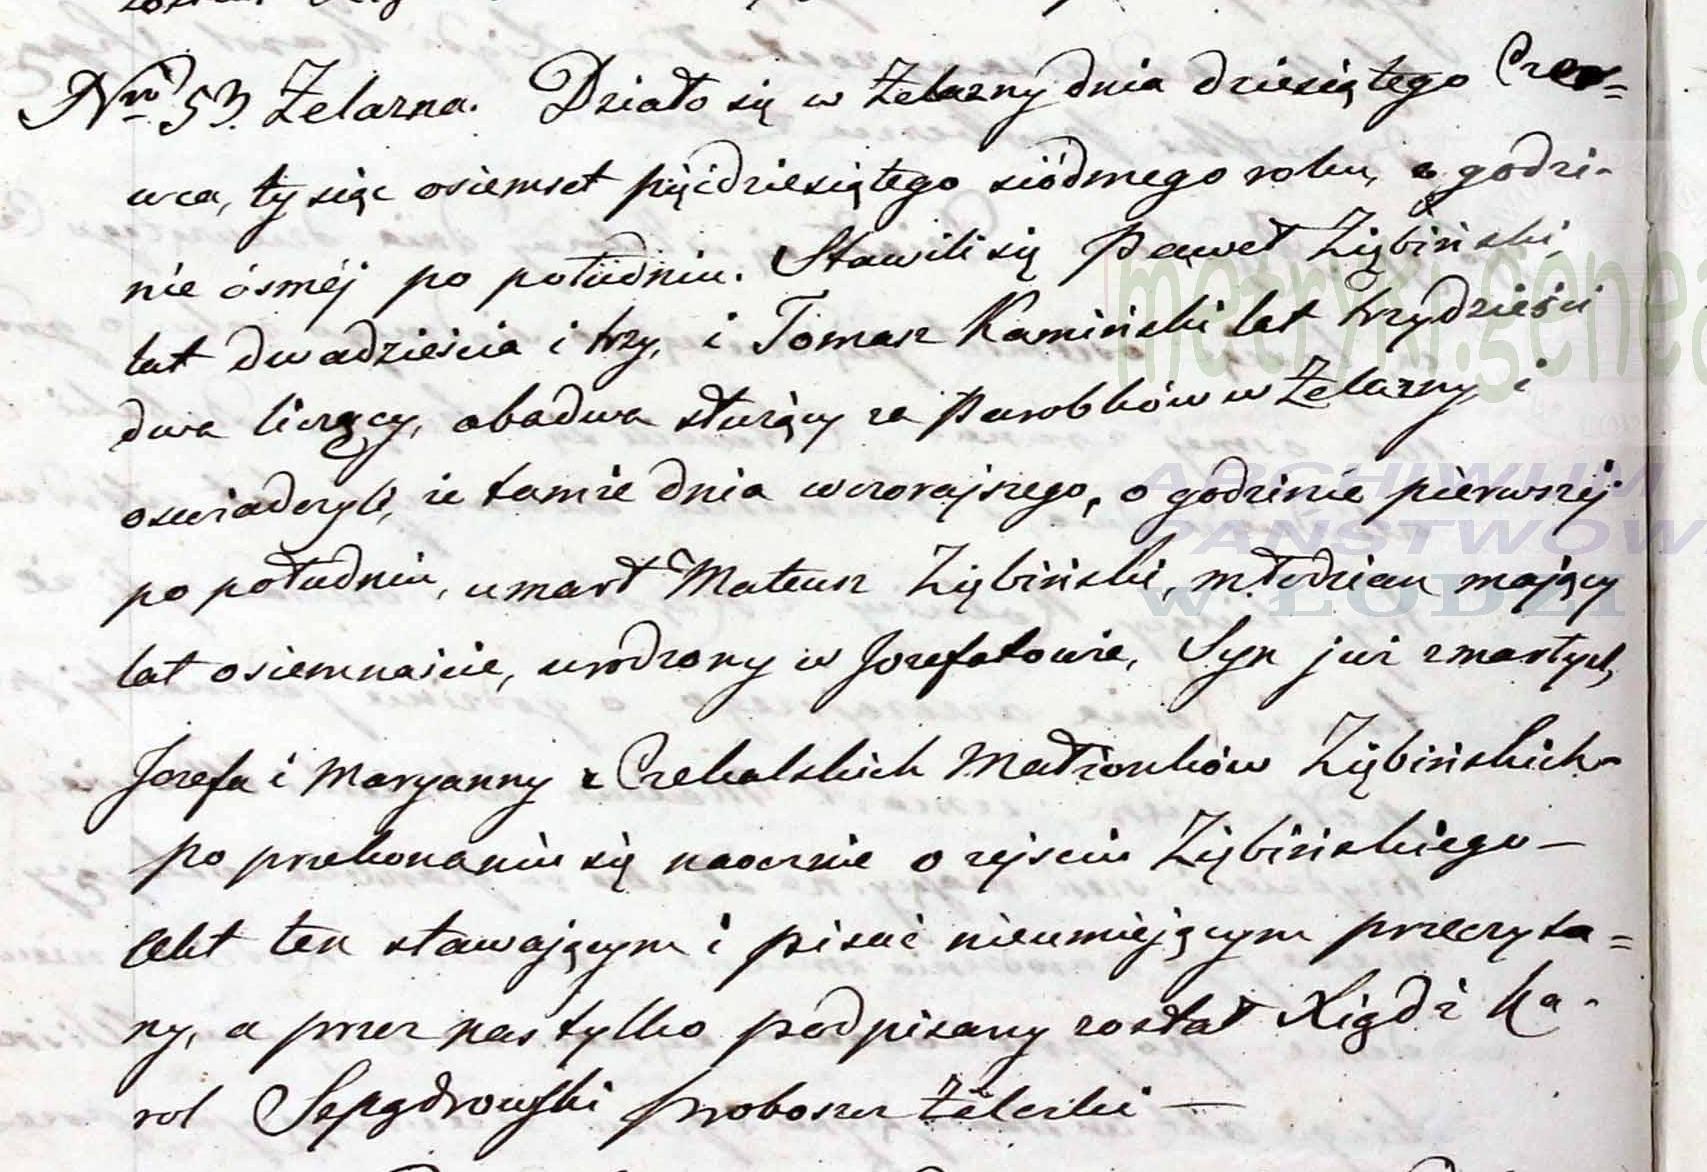 Nro 53. Żelazna. Działo się w Żelazny dnia dziesiątego Czer=
wca, tysiąc osiemset pięćdziesiątego siódmego roku, o godzi-
nie ósméj po południu. Stawili się Paweł Ziębiński,
lat dwadzieścia i trzy, i Tomasz Kamiński lat trzydzieści
dwa liczący, obadwa służący za Parobków w Żelazny i
oswiadczyli, że tamże dnia wczorajszego, o godzinie piérwszéj
po południu, umarł Mateusz Ziębiński, młodzian mający
lat osiemnaście, urodzony w Jozefatowie, Syn już zmarłych
Jozefa i Maryanny z Czekalskich Małżonków Ziębińskich-
po przekonaniu się naocznie o zejsciu Ziębińskiego—
Akt ten stawającym i pisać nieumiejącym przeczyta=
ny, a przez nas tylko podpisany został Xiądz Ka-
rol proboszcz Żelazki —
metryki.genea
ARCHIWUM
PAŃSTWOW
W ŁODZI